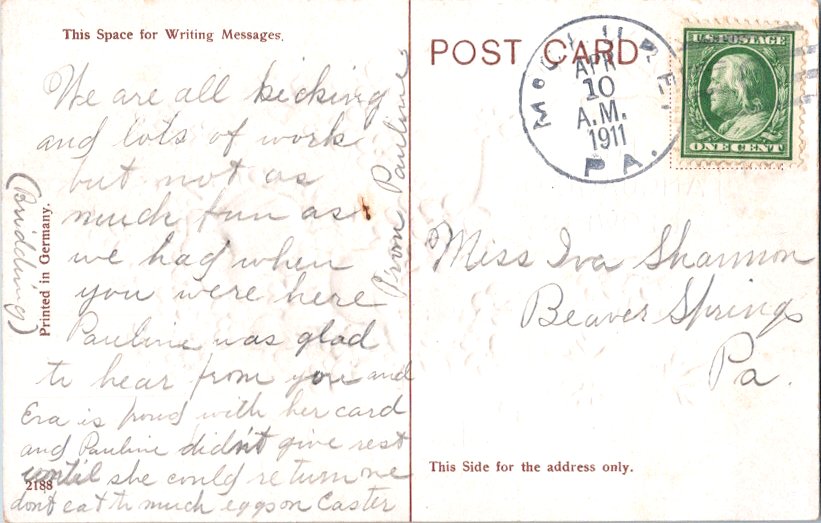 This Space for Writing Messages.
We are all kicking
and lots of work
but not as
much fun as
we had when
you were here
Pauline was glad
to hear from you and
Era is proud with her card
and Pauline didn't give rest
until she could return one
dont eat to much eggs on Easter
From Pauline
(Bridding)
Printed in Germany.
2188
POST CARD
APR
10
A.M.
1911
PA.
U.S. POSTAGE
ONE CENT
Miss Iva Shannon
Beaver Springs
Pa.
This Side for the address only.